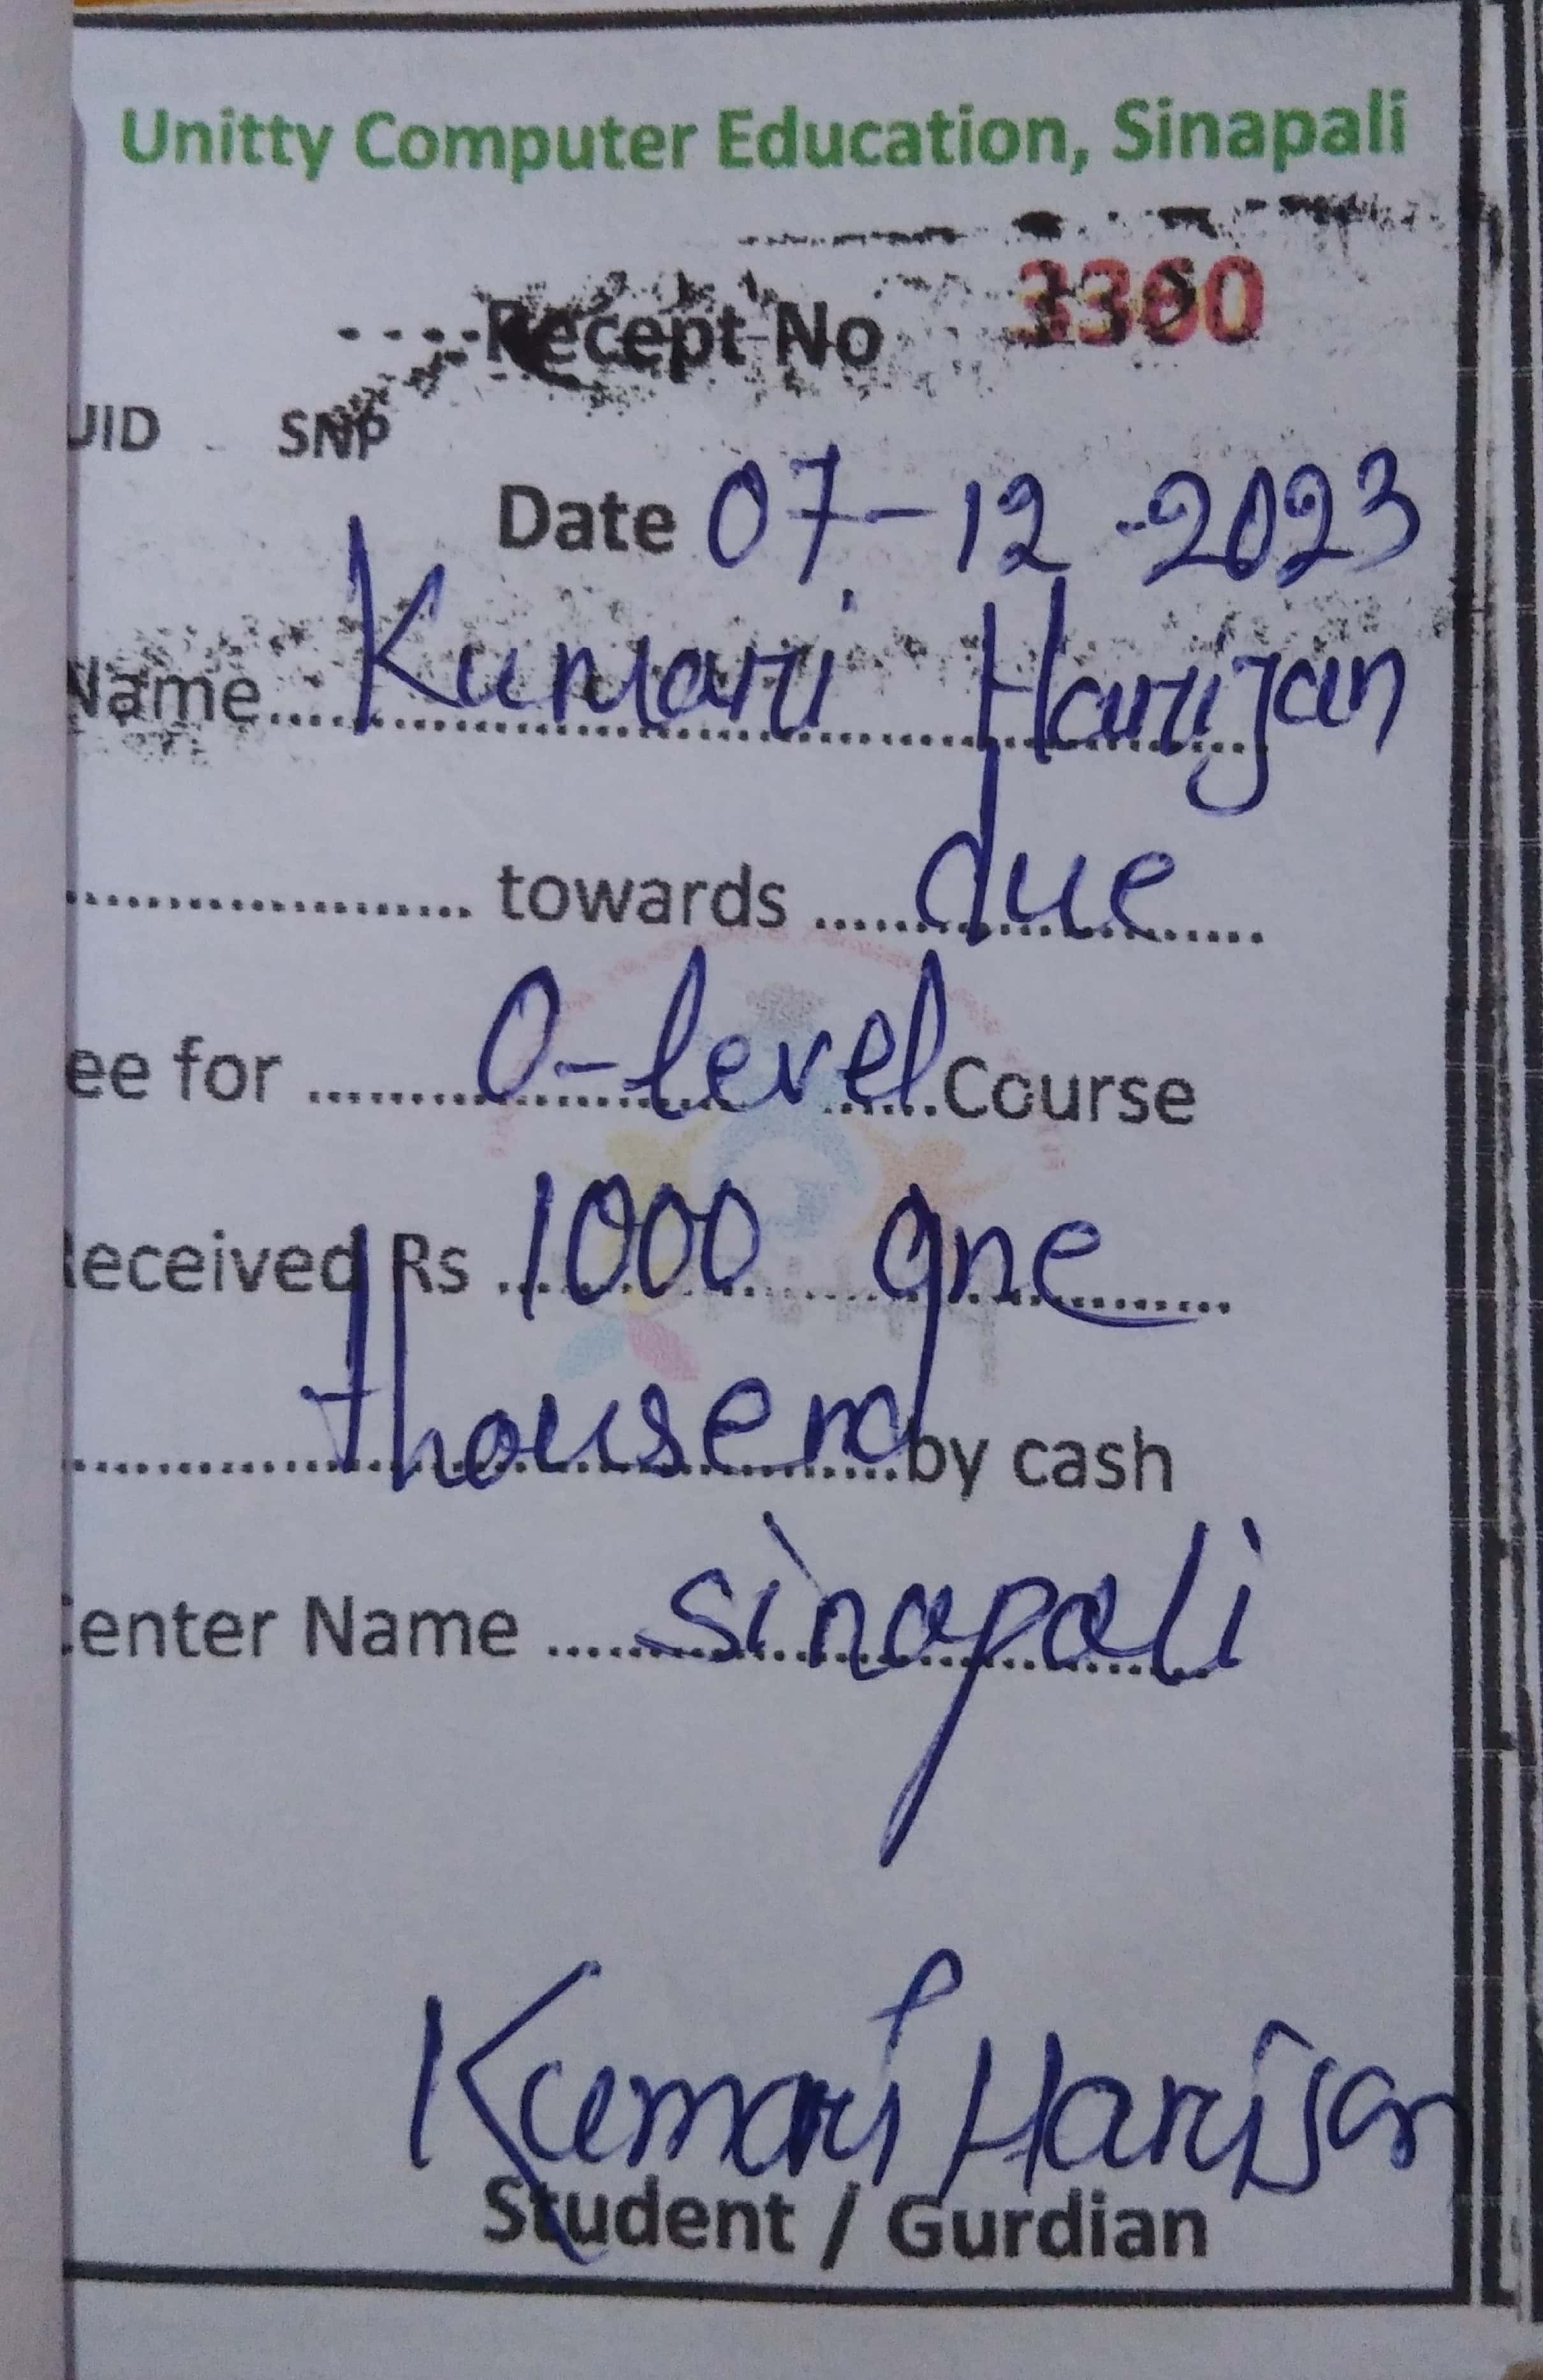 Unitty Computer Education, Sinapali
Recept No 3360
UID SNP
Date 07-12-2023
Name Kumari Harijan
towards due
ee for O-level Course
Received Rs 1000 one
thousend by cash
enter Name sinapali
Kumari Harijan
Student / Gurdian